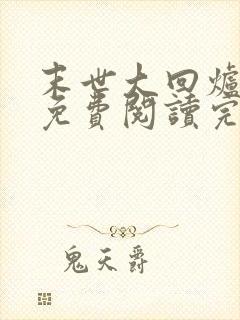 末世大回爐
免費閱讀完
鬼天爵